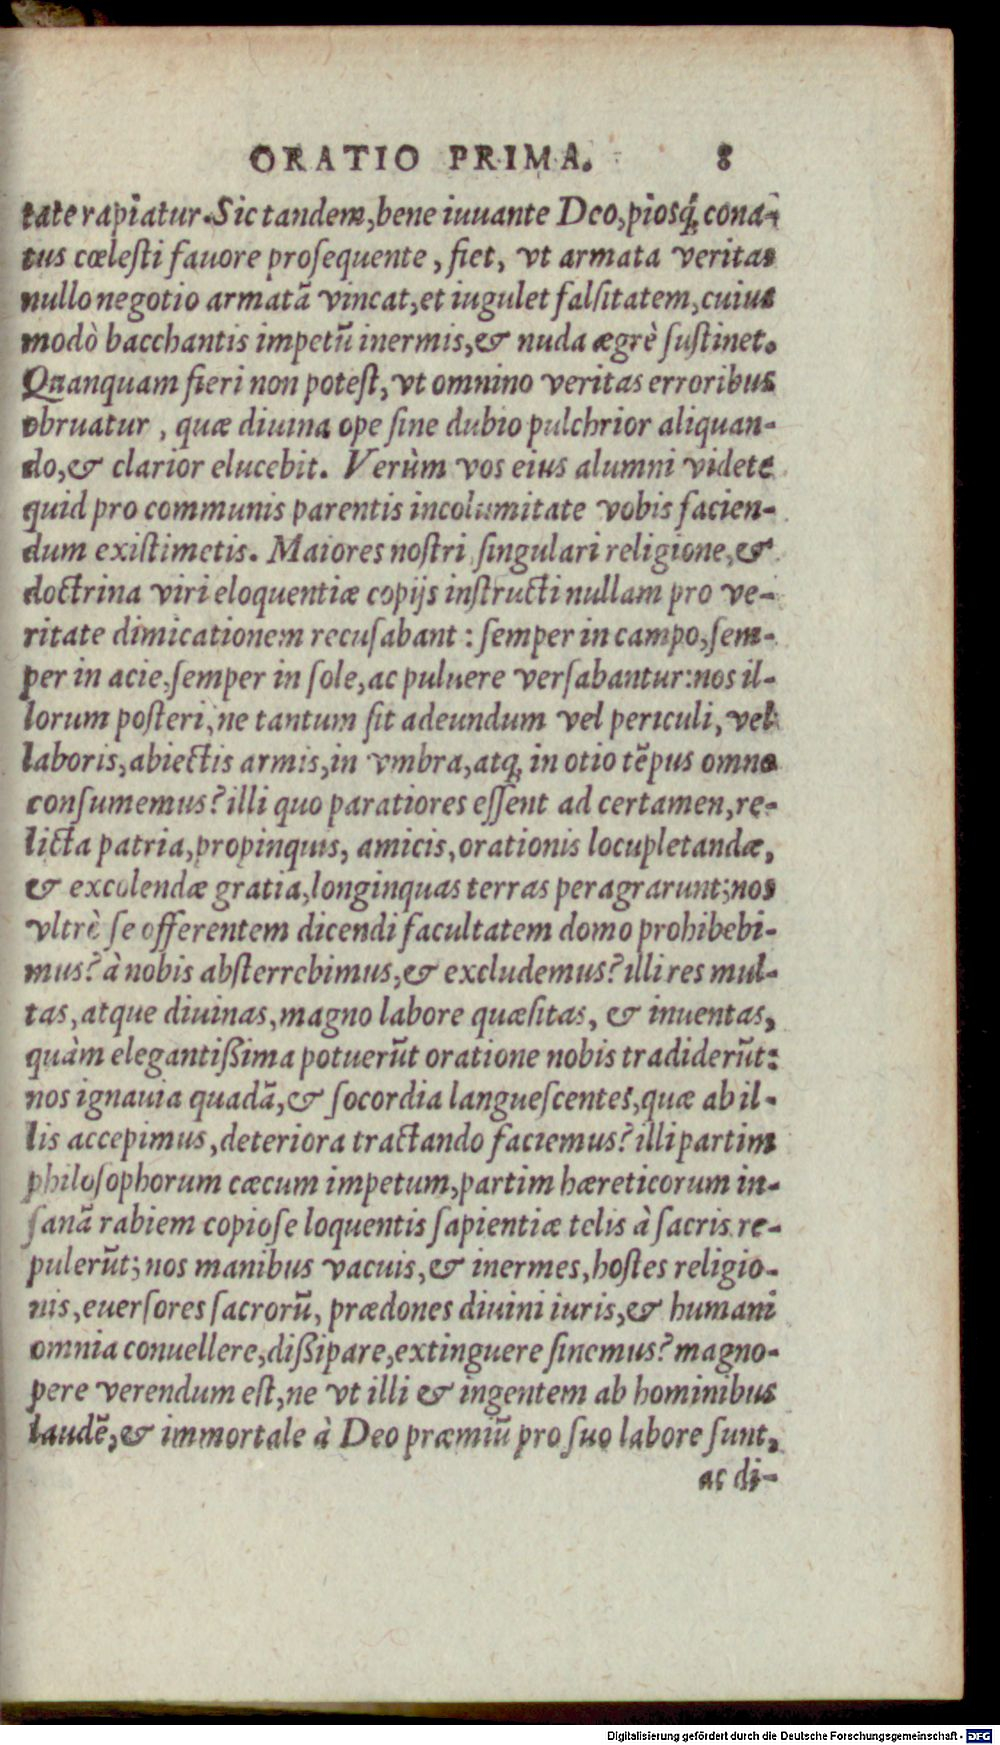 ORATIO PRIMA. 8
tate rapiatur. Sic tandem, bene iuuante Deo, piosq́; cona-
tus cœlesti fauore prosequente, fiet, vt armata veritas
nullo negotio armatā vincat, et iugulet falsitatem, cuius
modò bacchantis impetū inermis, & nuda ægrè sustinet.
Quanquam fieri non potest, vt omnino veritas erroribus
obruatur, quæ diuina ope sine dubio pulchrior aliquan-
do, & clarior elucebit. Verùm vos eius alumni videte
quid pro communis parentis incolumitate vobis facien-
dum existimetis. Maiores nostri singulari religione, &
doctrina viri eloquentiæ copijs instructi nullam pro ve-
ritate dimicationem recusabant: semper in campo, sem-
per in acie, semper in sole, ac puluere versabantur: nos il-
lorum posteri, ne tantum sit adeundum vel periculi, vel
laboris, abiectis armis, in vmbra, atq; in otio tēpus omne
consumemus? illi quo paratiores essent ad certamen, re-
licta patria, propinquis, amicis, orationis locupletandæ,
& excolendæ gratia, longinquas terras peragrarunt; nos
vltrè se offerentem dicendi facultatem domo prohibebi-
mus? à nobis absterrebimus, & excludemus? illi res mul-
tas, atque diuinas, magno labore quæsitas, & inuentas,
quàm elegantißima potuerūt oratione nobis tradiderūt:
nos ignauia quadā, & socordia languescentes, quæ ab il-
lis accepimus, deteriora tractando faciemus? illi partim
philosophorum cæcum impetum, partim hæreticorum in-
sanā rabiem copiose loquentis sapientiæ telis à sacris re-
pulerūt; nos manibus vacuis, & inermes, hostes religio-
nis, euersores sacrorū, prædones diuini iuris, & humani
omnia conuellere, dißipare, extinguere sinemus? magno-
pere verendum est, ne vt illi & ingentem ab hominibus
laudē, & immortale à Deo præmiū pro suo labore sunt,
ac di-
Digitalisierung gefördert durch die Deutsche Forschungsgemeinschaft - DFG